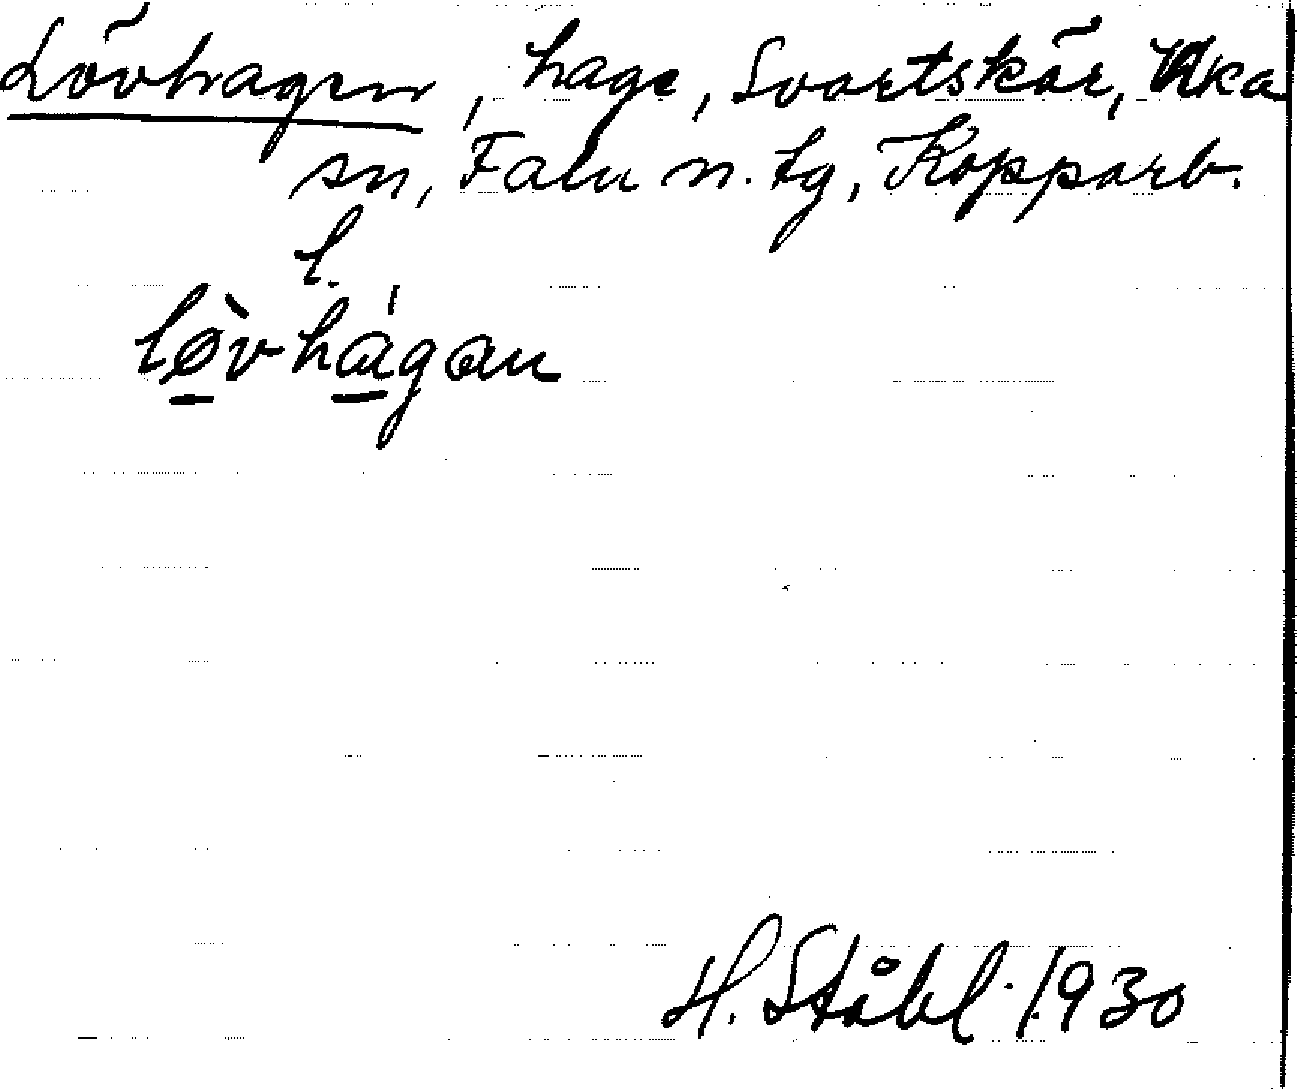 Lövhagen, hage, Svartskär, Vika
sn, Falu n. tg, Kopparb.
l.
lø̱̀vhá̱gan
H. Ståhl 1930